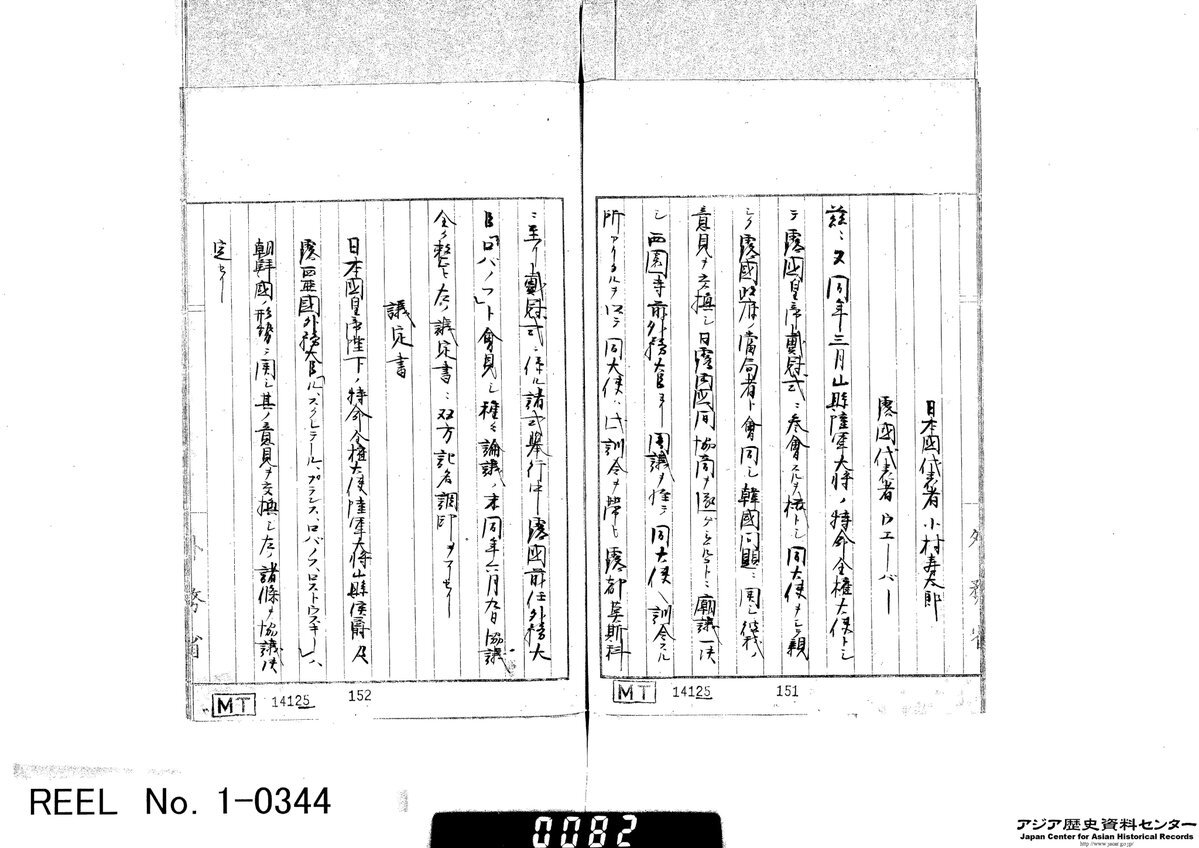 日本國代表者 小村寿太郎
露國代表者 ウエーバー
茲ニ又同年三月山縣陸軍大将ノ特命全権大使トシ
テ露國皇帝戴冠式ニ参會スルヲ機トシ同大使ヲシテ親
シク露國政府ノ當局者ト會同シ韓國問題ニ関シ彼我ノ
意見ヲ交換シ日露両國間協商ヲ遂ゲシムルコトニ廟議一決
シ西園寺前外務大臣ヨリ閣議ヲ経テ同大使ヘ訓令スル
所アリタルヲ以テ同大使ハ此訓令ヲ帯ヒ露都莫斯科
外務省
MT 14125 151
ニ至リ戴冠式ニ係ル諸式挙行中露國前任外務大
臣「ロバノフ」ト會見シ種々論議ノ末同年六月九日協議
全ク整ヒ左ノ議定書ニ双方記名調印ヲナセリ
議定書
日本國皇帝陛下ノ特命全権大使陸軍大将山縣侯爵及
露西亜國外務大臣「ル、スクレテール、プランス、ロバノフ、ロストウスキー」ハ
朝鮮國ノ形勢ニ関シ其ノ意見ヲ交換シ左ノ諸條ヲ協議決
定セリ
外務省
MT 14125 152
REEL No. 1-0344
0082
アジア歴史資料センター
Japan Center for Asian Historical Records
http://www.jacar.go.jp/